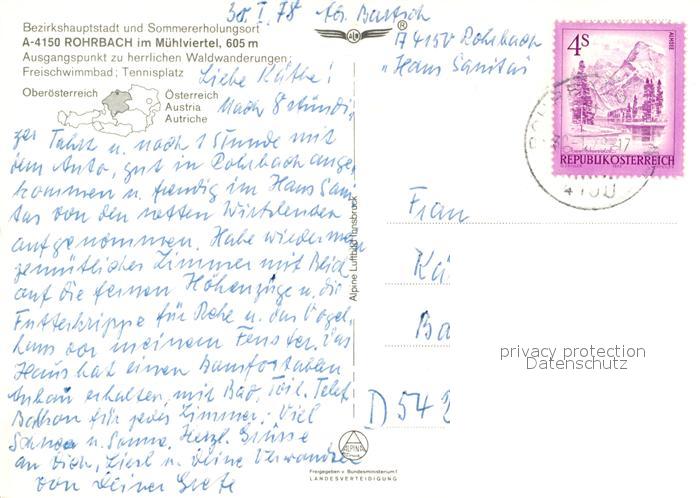 30. I. 78 Abs. Bartsch
A 4150 Rohrbach
"Haus Sanitas
Bezirkshauptstadt und Sommererholungsort
A-4150 ROHRBACH im Mühlviertel, 605 m
Ausgangspunkt zu herrlichen Waldwanderungen;
Freischwimmbad; Tennisplatz
Oberösterreich
Österreich
Austria
Autriche
Liebe Käthe!
Nach 8 stündi-
ger Fahrt u. noch 1 Stunde mit
dem Auto, gut in Rohrbach ange-
kommen u. freudig im Haus Sani-
tas von den netten Wirtsleuten
aufgenommen. Habe wieder mein
gemütliches Zimmer mit Blick
auf die fernen Höhenzüge u. die
Futterkrippe für Rehe u. das Vogel-
haus vor meinem Fenster. Das
Haus hat einen komfortablen
Anbau erhalten, mit Bad, Toil. Telef.
Balkon für jedes Zimmer. Viel
Schnee u. Sonne. Herzl. Grüsse
an Dich, Liesl u. Deine Verwandten
von Deiner Grete
Alpine Luftbild Innsbruck
ALPINA
Freigegeben v. Bundesministerium f.
LANDESVERTEIDIGUNG
4S
ALMSEE
REPUBLIK ÖSTERREICH
4150
Frau
Kä
Ba
D 542
privacy protection
Datenschutz